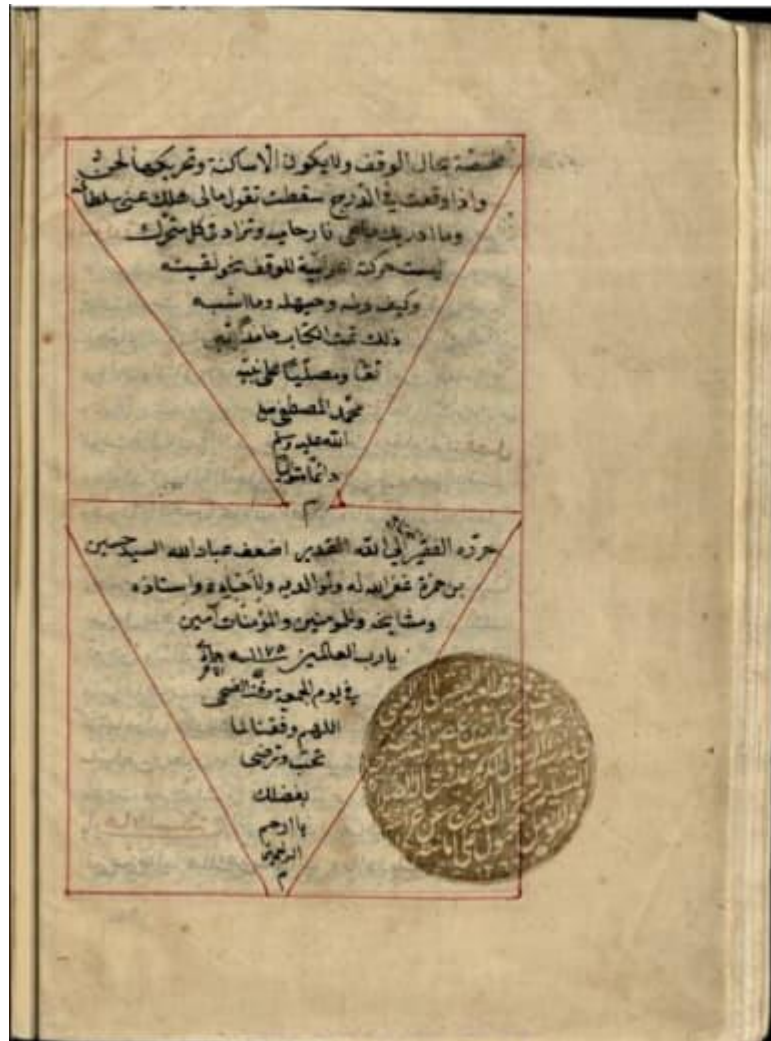 مختصة بحال الوقف ولا يكون الا ساكنة وتحريكها لحن
واذا وقعت في الدرج سقطت تقول مالى هلك عنى سلطانيه
وما ادريك ماهى نار حاميه وتزاد فى كل متحرك
ليست حركته اعرابية للوقف نحو لقيته
وكيف ونه وحيهله وما اشبه
ذلك تمت الكتاب حامدا لله
تعا ومصليا على نبيه
محمد المصطفى صلع
الله عليه وسلم
دائما متواليا
م
حرره الفقير الى الله القدير اضعف عباد الله السيد حسين
بن حمزة غفر الله له ولوالديه ولاحبابه واستاذه
ومشايخه وللمومنين والمؤمنات آمين
يارب العالمين ١١٧٥ سنه
فى يوم الجمعة وقت الضحى
اللهم وفقنا لما
تحب وترضى
بفضلك
يا ارحم
الراحمين
م